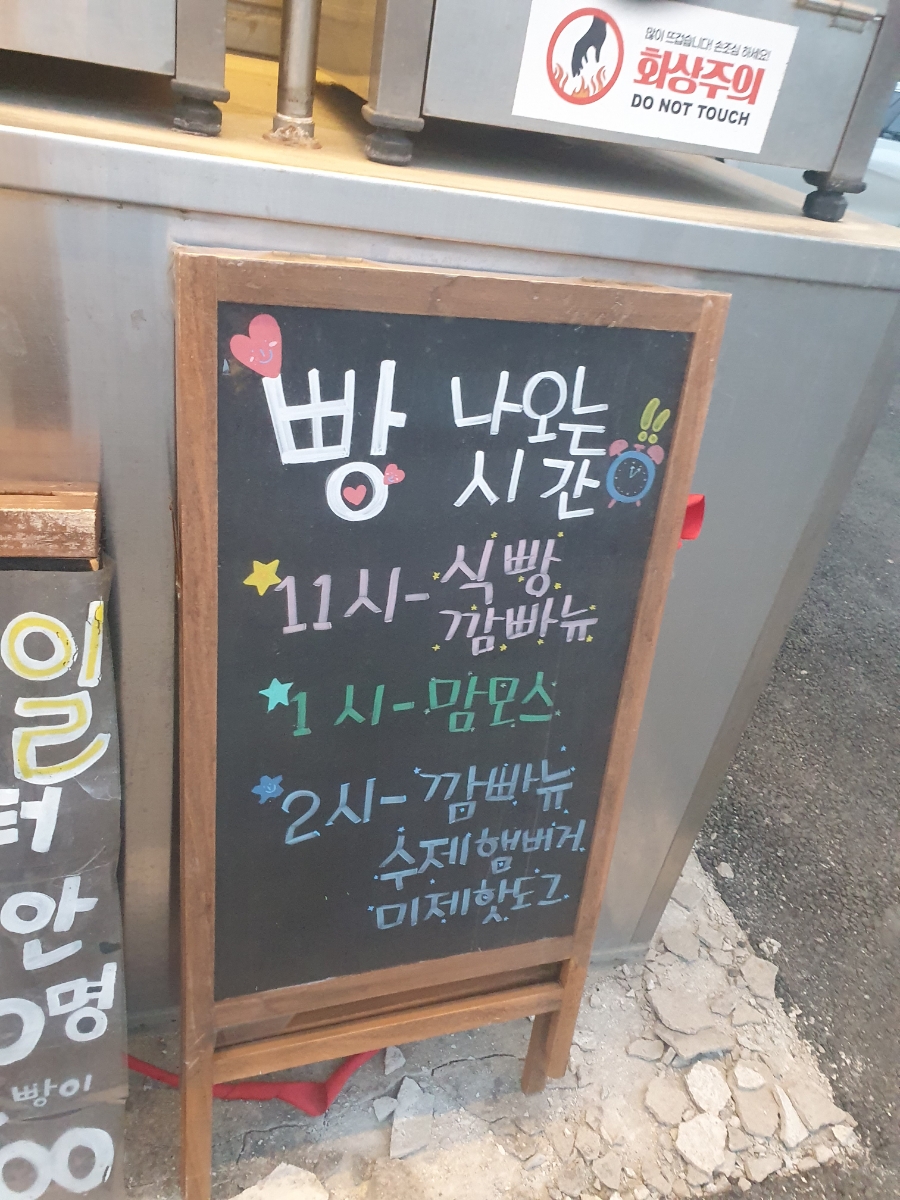 많이 뜨겁습니다! 손조심 하세요!
화상주의
DO NOT TOUCH
빵 나오는
시간!!
11시-식빵
깜빠뉴
1시-맘모스
2시-깜빠뉴
수제햄버거
미제핫도그
일
터
안
명
빵이
00